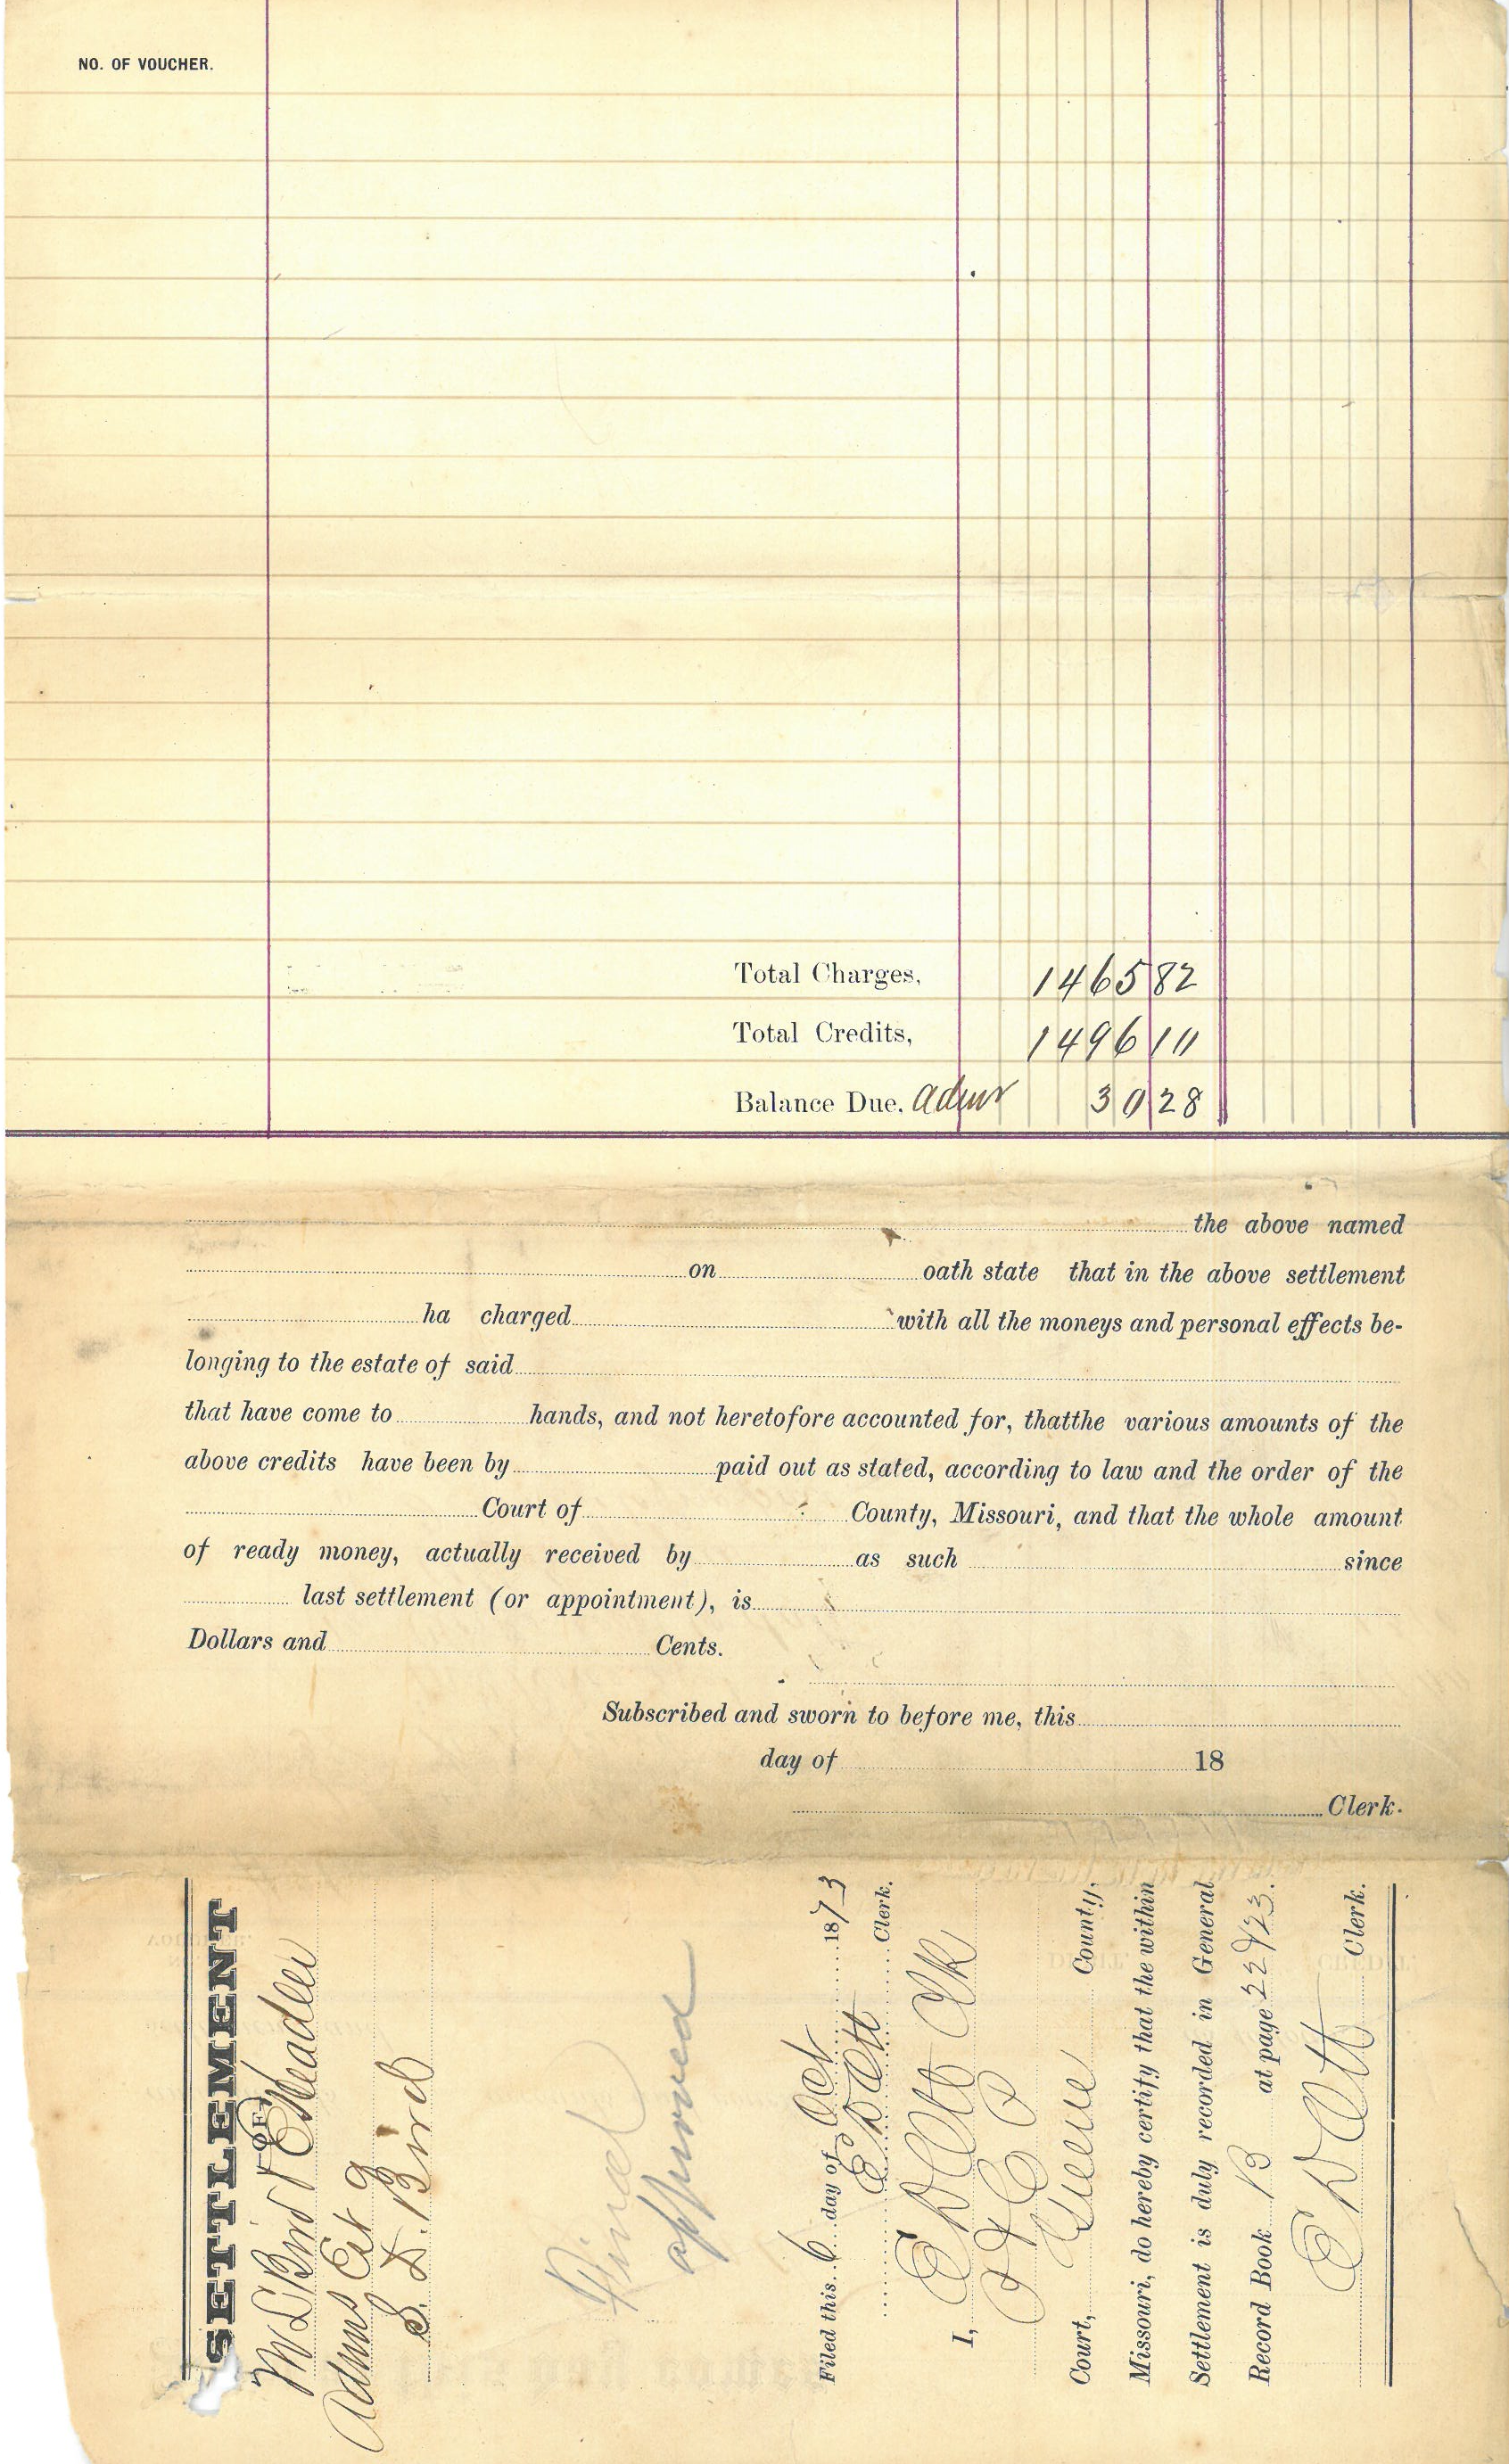 NO. OF VOUCHER.
Total Charges, 1465 82
Total Credits, 1496 11
Balance Due, admr 30 28
the above named
on oath state that in the above settlement
ha charged with all the moneys and personal effects be-
longing to the estate of said
that have come to hands, and not heretofore accounted for, thatthe various amounts of the
above credits have been by paid out as stated, according to law and the order of the
Court of County, Missouri, and that the whole amount
of ready money, actually received by as such since
last settlement (or appointment), is
Dollars and Cents.
Subscribed and sworn to before me, this
day of 18
Clerk.
SETTLEMENT
OF
M L Bird & E Headlee
Admrs Est of
S. D. Bird
Final
approved
Filed this 6 day of Oct 1873
E D Ott Clerk.
I, E D Ott Clk
Court, Greene County,
Missouri, do hereby certify that the within
Settlement is duly recorded in General
Record Book B at page 22 & 23.
E D Ott Clerk.